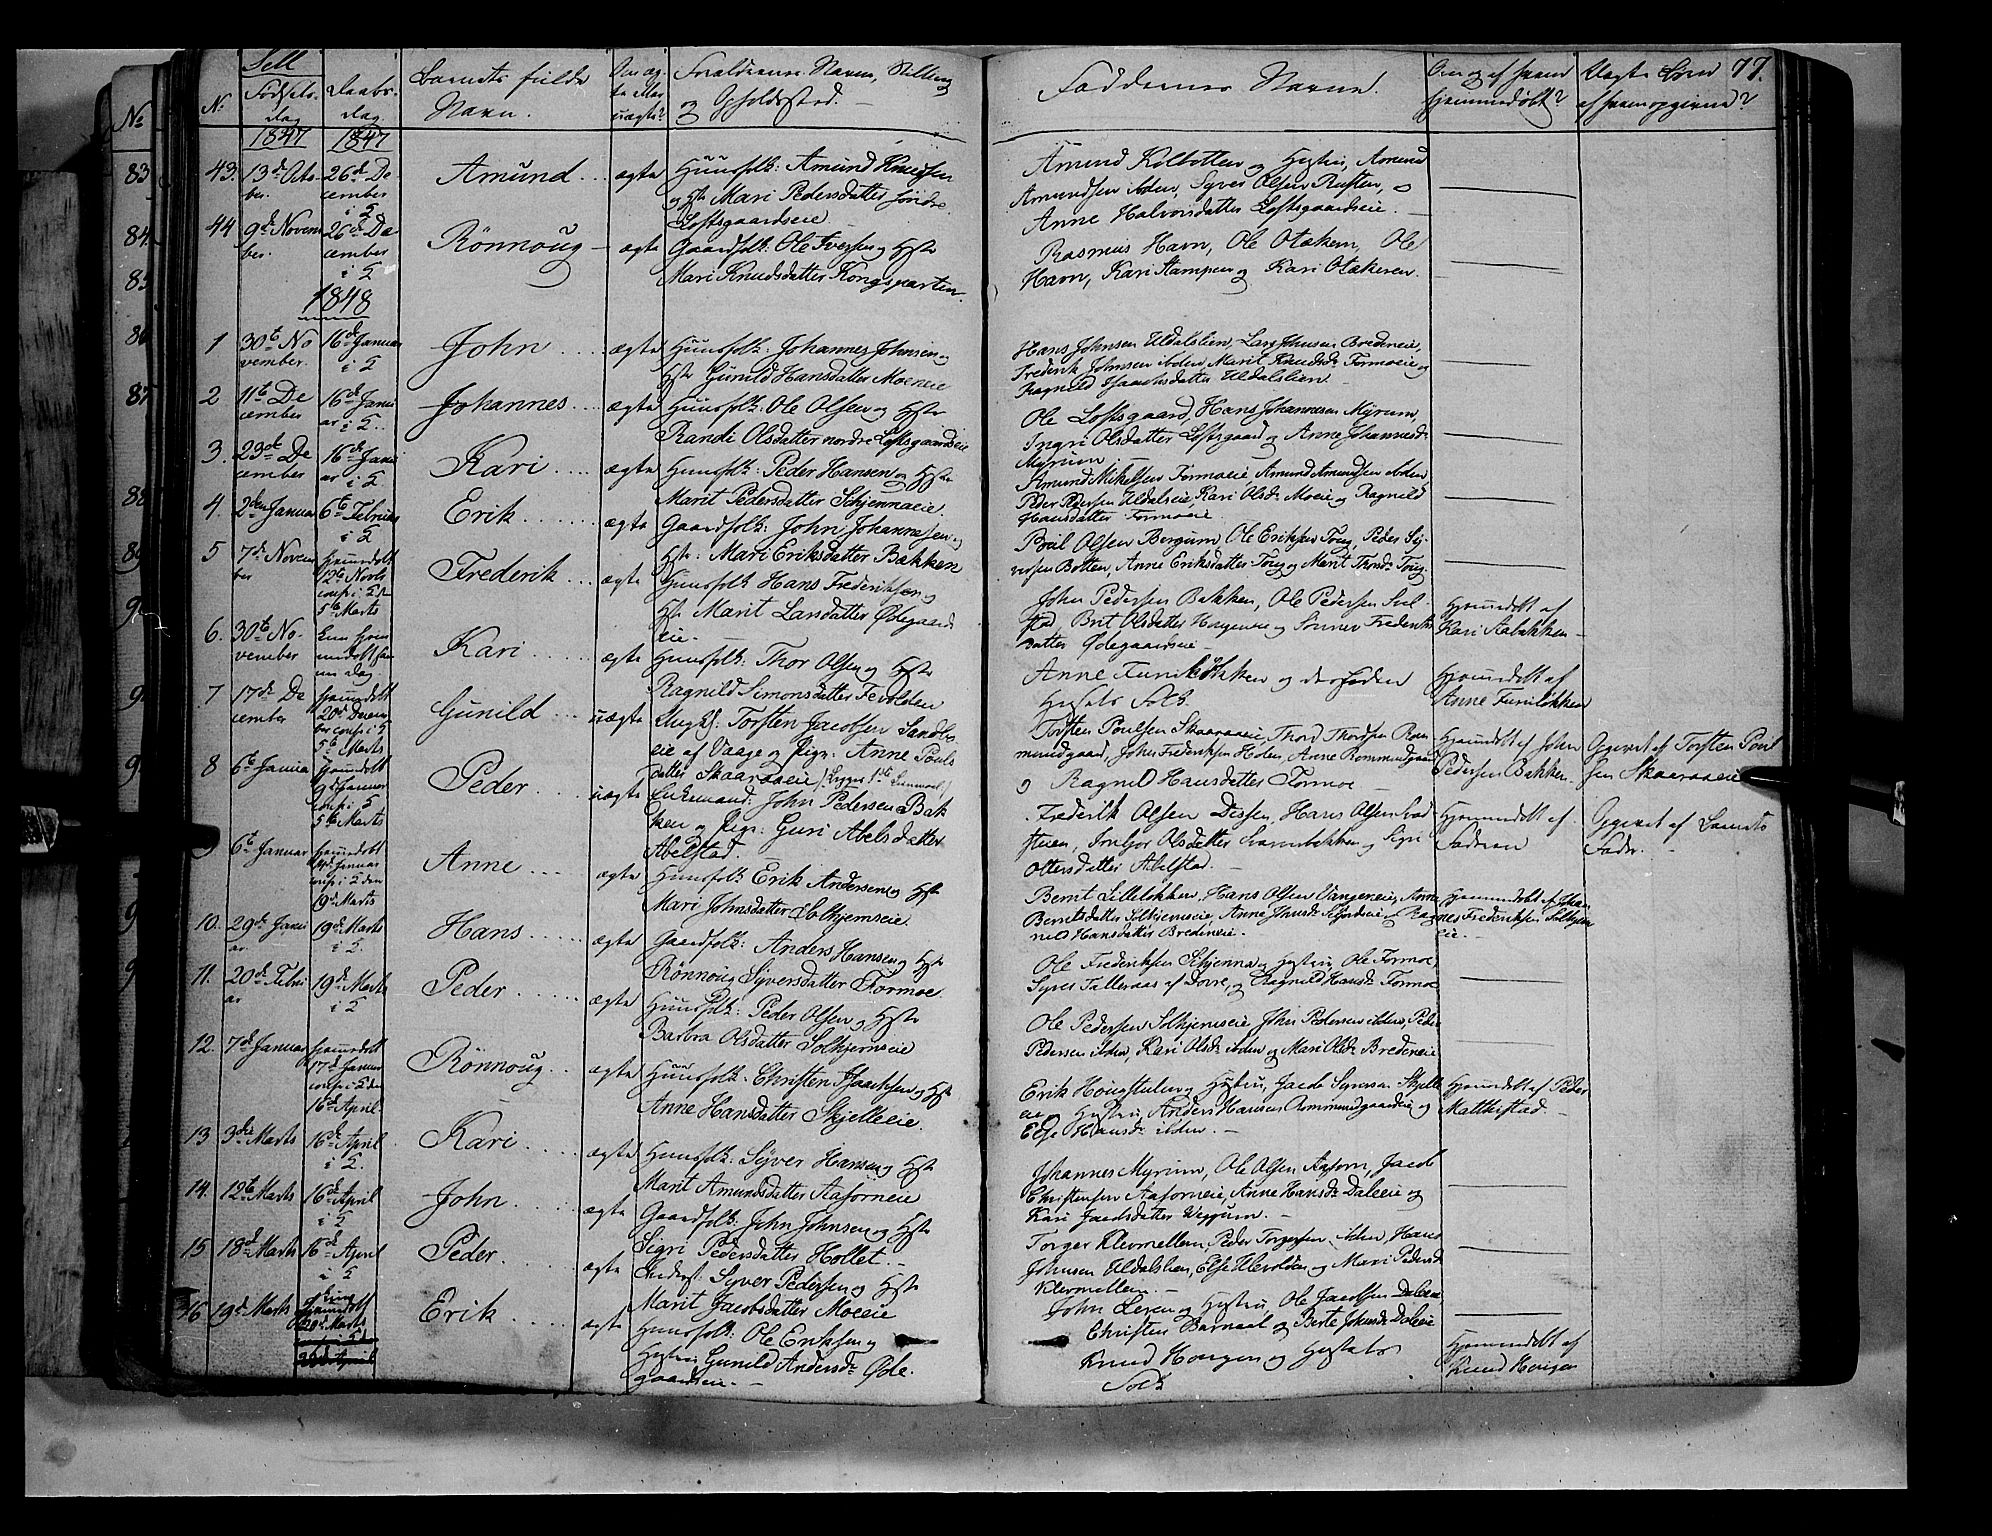 Sell
77.
No
Fødsels-
dag
Daabs-
dag
Barnets fulde
Navn.
Om æg-
te eller
uægte?
Forældrenes Navn, Stilling
og Opholdssted.
Faddernes Navne.
Om og af hvem
hjemmedøbt?
Uægte Børn
af hvem opgivne?
1847
1847
43. 13de Octo-
ber.
26de De
cember
i S
Amund
ægte
Huusfolk: Amund Knudsen
og Hstr Mari Pedersdatter søndre
Loftsgaardseie
Amund Kolbotten og Hustru, Amund
Amundsen ibden, Syver Olsen Rusten, og
Anne Halvorsdatter Loftsgaardseie.
44 9de Novem
ber.
26de De
cember
i S
Rönnoug
ægte
Gaardfolk: Ole Iversen og Hstr
Mari Knudsdatter Kongsparten.
Rasmus Havn, Ole Otækern, Ole
Havn, Kari Stampen og Kari Otækeren.
1848
1 30te No
vember
16de Januar
i S
John
ægte
Huusfolk: Johannes Johnsen og
Hstr Gunild Hansdatter Moeneie
Hans Johnsen Uldalslien, Lars Johnsen Bredeneie,
Frederik Johnsen ibden, Marit Knudsdr Formoeie og
Ragnild Isaachsdatter Uldalslien
2 11te De
cember
16de Janu
ar i S.
Johannes
ægte
Huusfolk: Ole Olsen og Hstr
Randi Olsdatter nordre Loftsgaardseie
Ole Loftsgaard, Hans Johannesen Myrum,
Ingri Olsdatter Loftsgaard og Anne Johannesdr
Myrum
3. 23de De
cember
16de Janu
ar i S
Kari
ægte
Huusfolk: Peder Hansen og Hstr
Marit Pedersdatter Schjennaeie
Amund Mikelsen Formoeie, Amund Amundsen ibden,
Peder Pedersen Uldalseie, Kari Olsdr Moeie og Ragnild
Hansdatter Formoeie
4. 2den Januar
6te Februar
i S
Erik
ægte
Gaardfolk: John Johannesen og
Hstr Mari Eriksdatter Bakken
Olsen Bergum, Ole Eriksen Toug, Peder Sy-
versen Botten, Anne Eriksdatter Toug og Marit Thordsdr Toug.
5 7de Novem
ber
hjemmedøbt
12te Novbr
conf i S d
5te Marts
Frederik
ægte
Huusfolk Hans Frederiksen og
Hstr Marit Larsdatter Ødegaards
eie.
John Pedersen Bakken, Ole Pedersen Sul-
stad, Brit Olsdatter Haugeneie og Frederiks
datter Ødegaardseie
Hjemmedøbt af
Kari Aabakken
6. 30te No-
vember
Kun hjem
medøbt sam
me dag
Kari
ægte
Huusfolk: Thor Olsen og Hstr
Ragnild Simonsdatter Fevolden
Anne Furuløkken og der Føden
Husets Folk
Hjemmedøbt af
Anne Furuløkken
7 17de De
cember
hjemmedøbt
20de Decem
ber conf i S
5te Marts
Gunild
uægte
Ungkl: Torsten Jacobsen Sandbo
eie af Vaage og Pige: Anne Pouls
datter Skaaraaeie (: begges 1ste Leiermaal:)
Torsten Poulsen Skaaraaeie, Thord Thordsen Rom
mundgaard, John Frederiksen Holen, Anne Rommundgaard
og Ragnild Hansdatter Formoe
Hjemmedøbt af John
Pedersen Bakken
Opgivet af Torsten Poul
sen Skaaraaeie
8 6te Januar
hjemmedøbt
9de Januar
conf i S
5te Marts
Peder
uægte
Enkemand: John Pedersen Bak
ken og Pige: Guri Abelsdatter
Abelstad.
Frederik Olsen Dessen, Hans Olsen Svad
steien, Ingebor Olsdatter Svarenbakken og Sigri
Ottersdatter Abelstad.
Hjemmedøbt af
Faderen
Opgivet af Barnets
Fader.
6te Januar
hjemmedøbt
Januar
conf i S den
19de Marts
Anne
ægte
Huusfolk Erik Andersen og Hstr
Mari Johnsdatter Solhjemseie
Bernt Lilleløkken, Hans Olsen Vangeneie, Anne
Berntsdatter Solhjemseie, Anne Johnsdr og Rag
nild Hansdatter Bredeneie.
Hjemmedøbt af Johan
nes Frederiksen Solhjem
eie.
10. 29de Janu
ar.
19de Marts
i S.
Hans
ægte
Gaardfolk: Anders Hansen og Hstr
Rönnoug Syversdatter Formoe
Ole Frederiksen Schjenna og Hustru, Ole Formoe,
Syver Talleraas af Dovre, og Ragnild Hansdr Formoe
11. 20de Febru
ar
19de Marts
i S
Peder
ægte
Huusfolk: Peder Olsen og Hstr
Barbra Olsdatter Solhjemseie
Ole Pedersen Solhjemseie, John Pedersen ibden, Peder
Pedersen ibden, Kari Olsdr ibden og Mari Olsdr Bredeneie
12. 7de Januar
hjemmedøbt
17de Januar
conf i S den
16de April
Rönnoug
ægte
Huusfolk: Christen Isaachsen og Hstr
Anne Hansdatter Skjelleeie
Erik Hougstulen og Hustru, Jacob Skjelle
eie og Hustru, Anders Hansen Rommundgaardeie og
Else Hansdr ibden.
Hjemmedøbt af Peder
Matthistad
13 3die Marts
16de April
i S.
Kari
ægte
Huusfolk: Syver Hansen og Hstr
Marit Amundsdatter Aaforneie
Johannes Myrum, Ole Olsen Aaforn, Jacob
Christensen Aaforneie, Anne Hansdr Daleeie og
Kari Jacobsdatter Veggum.
14. 12te Marts
16de April
i S
John
ægte
Gaardfolk: John Johnsen og Hstr
Sigri Pedersdatter Hollet.
Torger Klevmellem, Peder Torgersen ibden, Hans
Johnsen Uldalslien, Else Ulvolden og Mari Pedersdr
Klevmellem.
15 18de Marts
16de April
i S
Peder
ægte
Inderst: Syver Pedersen og Hstr
Marit Jacobsdatter Moeeie
John Leren og Hustru, Ole Jacobsen Daleeie
Christen Barnaal og Berte Johnsdr Daleeie
16 19de Marts
Kun
hjemmedøbt
20de Marts
Erik
ægte
Huusfolk: Ole Eriksen og
Hustru Gunild Andersdr Øde-
gaardseie.
Knud Hougen og Husets
Folk
Hjemmedøbt af
Knud Hougen
No
83
84
85
86
87
88
89